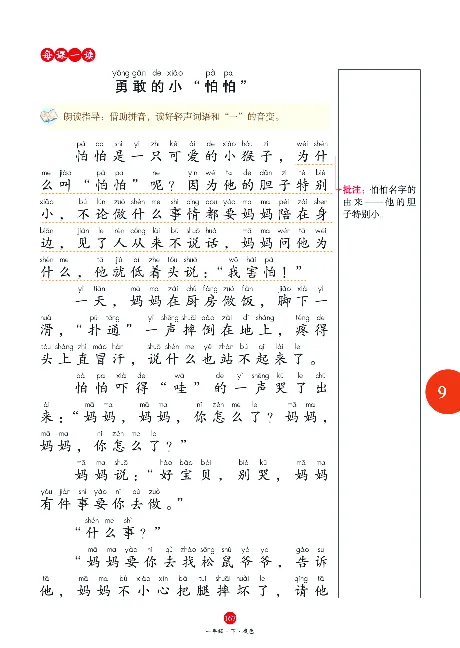 每课一读
yǒng gǎn de xiǎo pà pa
勇敢的小“怕怕”
朗读指导：借助拼音，读好轻声词语和“一”的音变。
pà pa shì yì zhī kě ài de xiǎo hóu zi wèi shén
怕怕是一只可爱的小猴子，为什
me jiào pà pa ne yīn wèi tā de dǎn zi tè bié
么叫“怕怕”呢？因为他的胆子特别
xiǎo bú lùn zuò shén me shì qing dōu yào mā ma péi zài shēn
小，不论做什么事情都要妈妈陪在身
biān jiàn le rén cóng lái bù shuō huà mā ma wèn tā wèi
边，见了人从来不说话，妈妈问他为
shén me tā jiù dī zhe tóu shuō wǒ hài pà
什么，他就低着头说：“我害怕！”
yì tiān mā ma zài chú fáng zuò fàn jiǎo xià yì
一天，妈妈在厨房做饭，脚下一
huá pū tōng yì shēng shuāi dǎo zài dì shàng téng de
滑，“扑通”一声摔倒在地上，疼得
tóu shàng zhí mào hàn shuō shén me yě zhàn bù qǐ lái le
头上直冒汗，说什么也站不起来了。
pà pa xià de wā de yì shēng kū le chū
怕怕吓得“哇”的一声哭了出
lái mā ma mā ma nǐ zěn me le mā ma
来：“妈妈，妈妈，你怎么了？妈妈，
mā ma nǐ zěn me le
妈妈，你怎么了？”
mā ma shuō hǎo bǎo bèi bié kū mā ma
妈妈说：“好宝贝，别哭，妈妈
yǒu jiàn shì yào nǐ qù zuò
有件事要你去做。”
shén me shì
“什么事？”
mā ma yào nǐ qù zhǎo sōng shǔ yé ye gào su
“妈妈要你去找松鼠爷爷，告诉
tā mā ma bù xiǎo xīn bǎ tuǐ shuāi huài le qǐng tā
他，妈妈不小心把腿摔坏了，请他
批注：怕怕名字的
由来——他的胆
子特别小
9
167
一年级·下·橙色